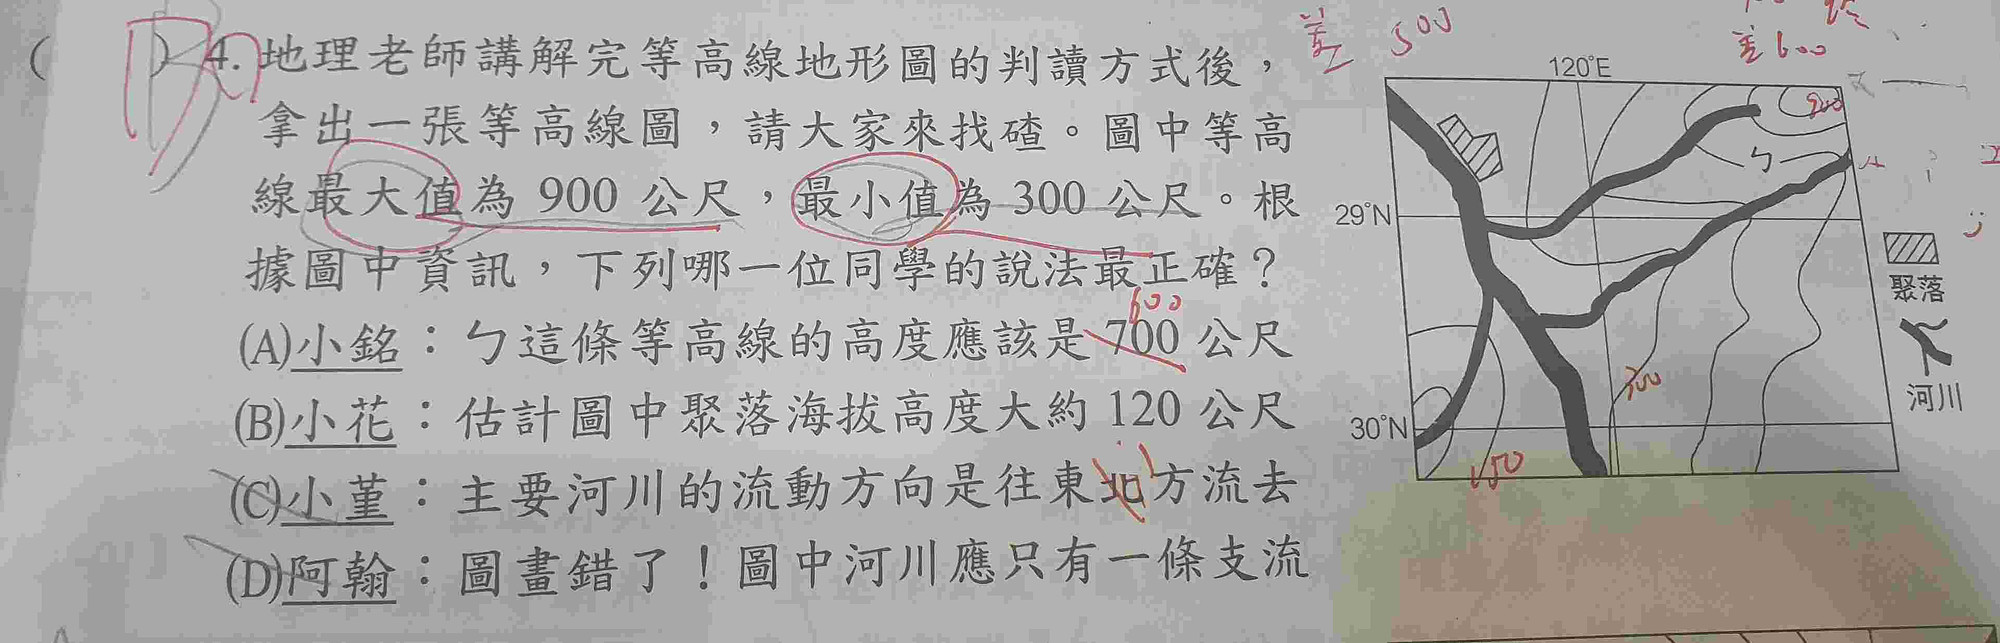 (　　)4.地理老師講解完等高線地形圖的判讀方式後，
拿出一張等高線圖，請大家來找碴。圖中等高
線最大值為 900 公尺，最小值為 300 公尺。根
據圖中資訊，下列哪一位同學的說法最正確？
600
(A)小銘：ㄅ這條等高線的高度應該是 700 公尺
(B)小花：估計圖中聚落海拔高度大約 120 公尺
(C)小堇：主要河川的流動方向是往東北方流去
(D)阿翰：圖畫錯了！圖中河川應只有一條支流
差 500
差600
120°E
900
ㄅ
29°N
聚落
河川
300
30°N
150